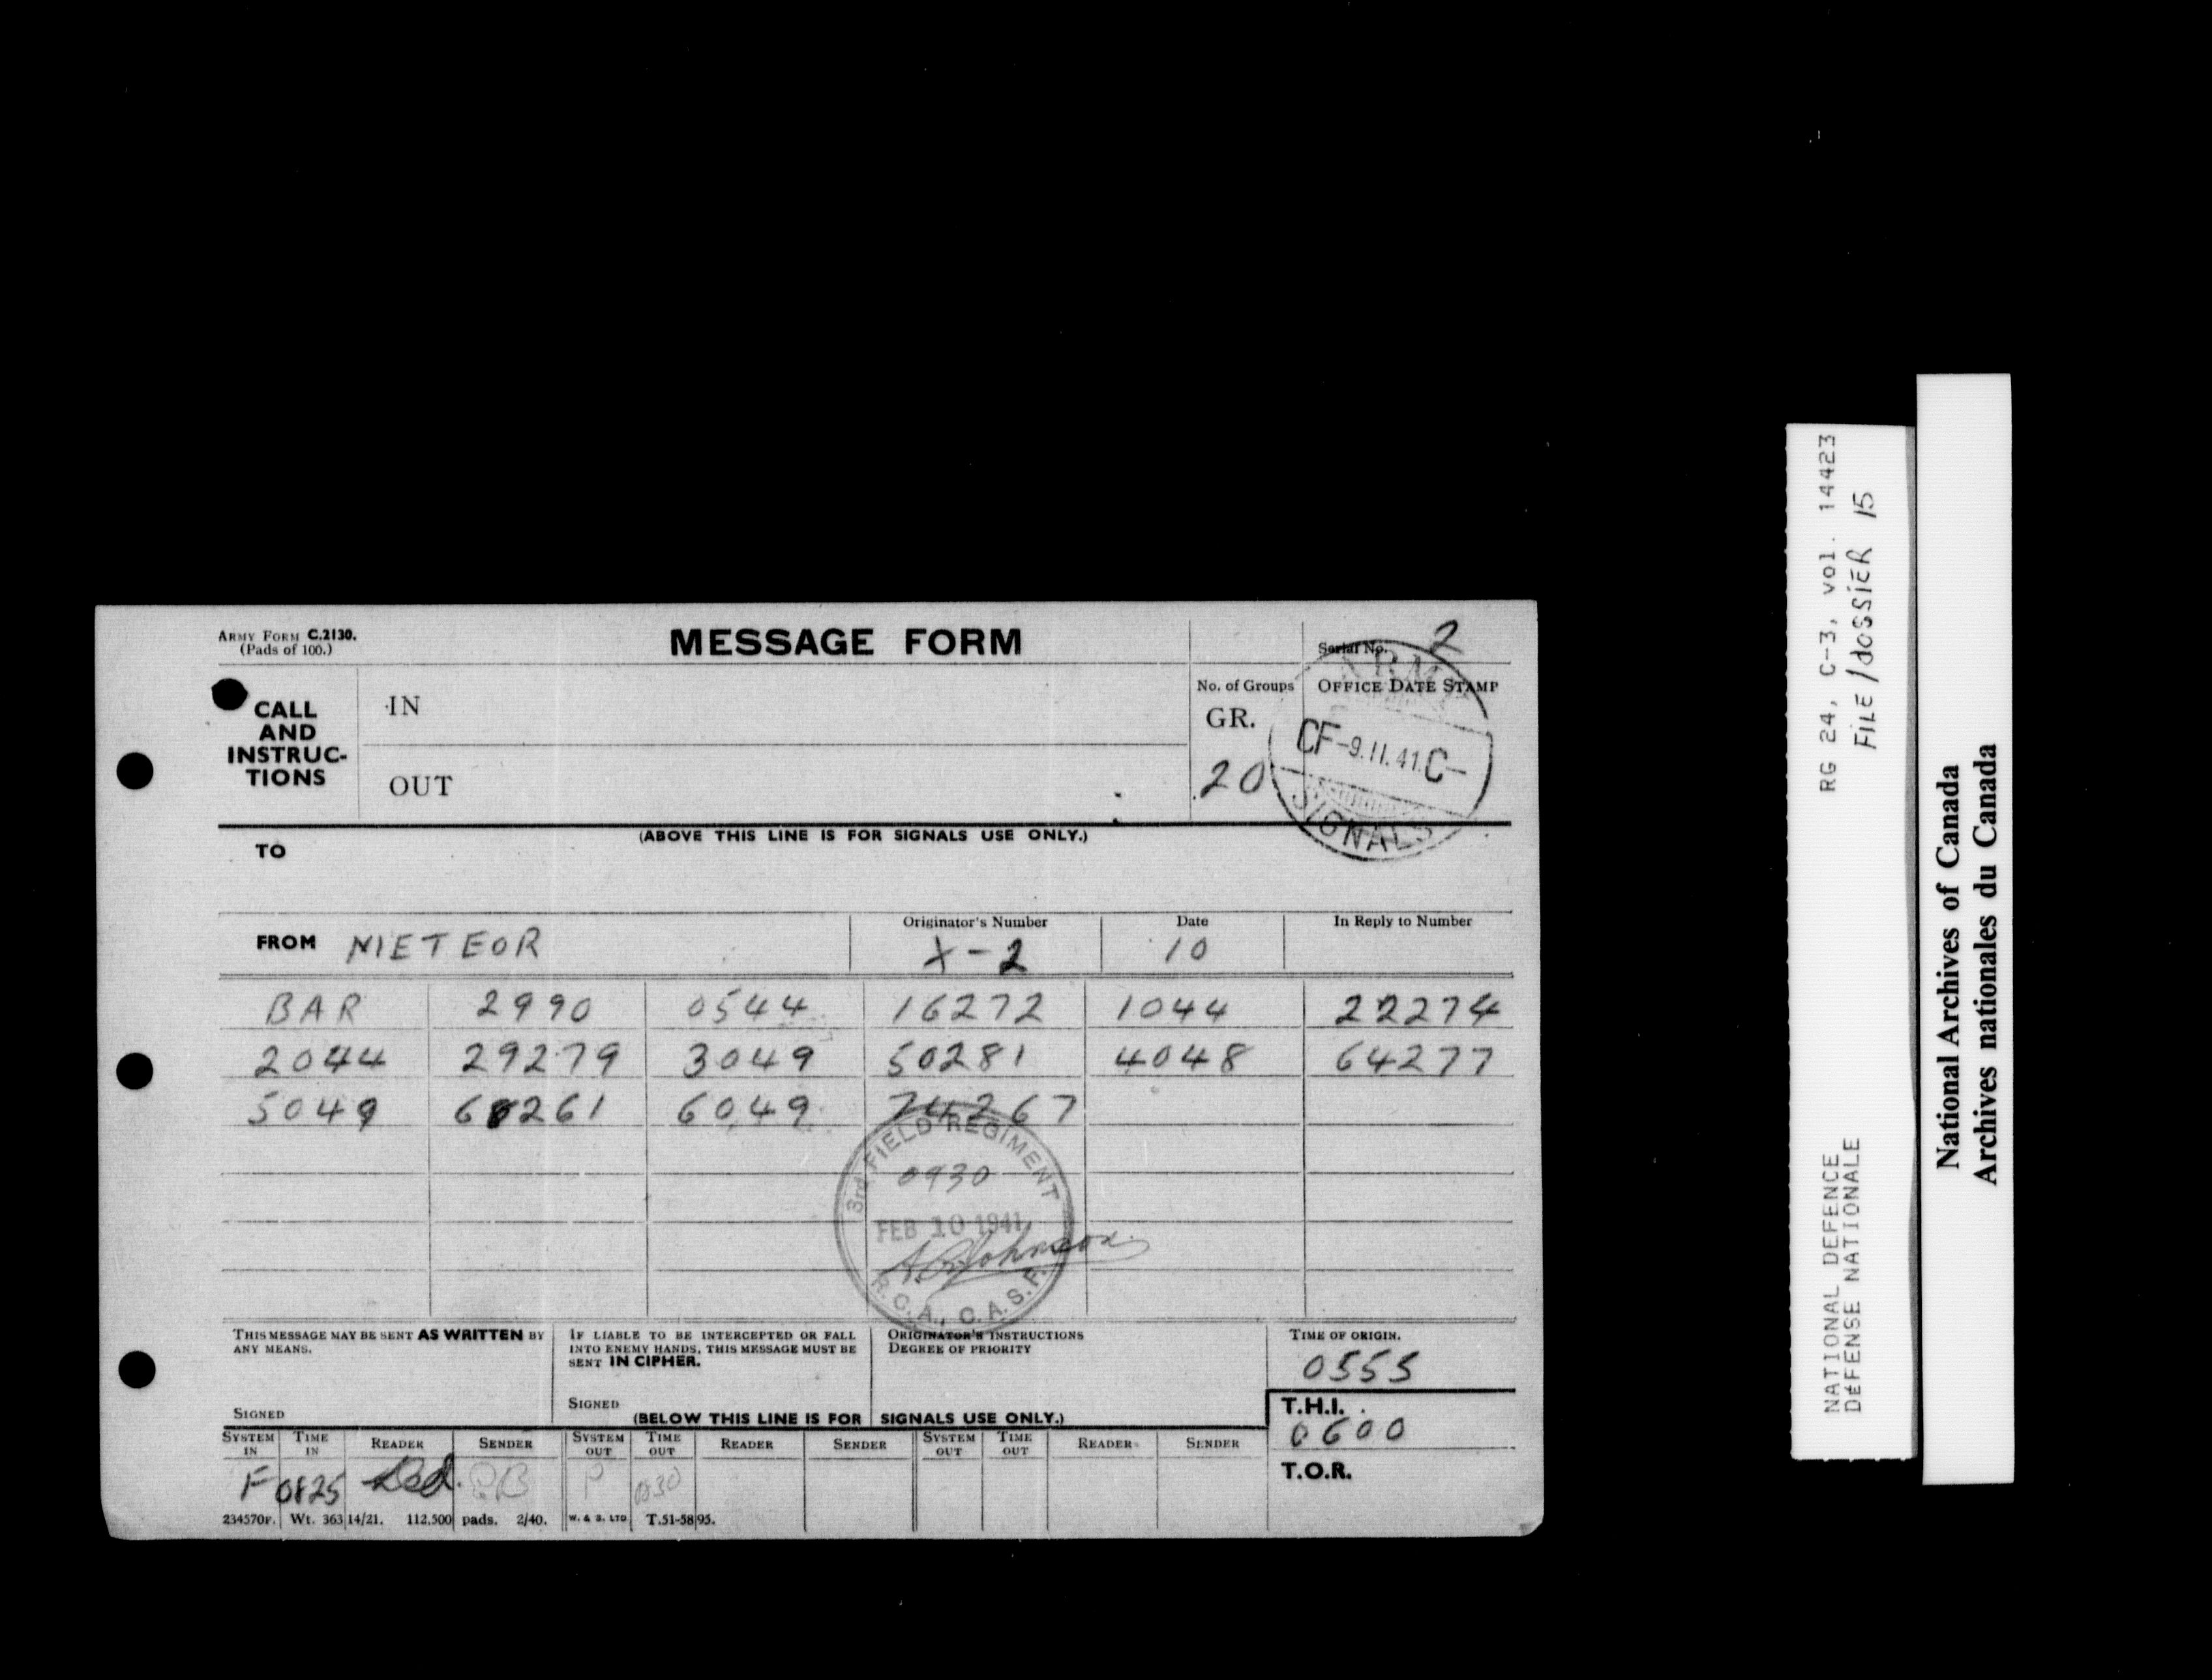 ARMY FORM C.2130.
(Pads of 100.)
MESSAGE FORM
Serial No. 2
CALL AND INSTRUC-TIONS
IN
OUT
No. of Groups
GR.
20
OFFICE DATE STAMP
ARMY
CF-9.II.41.C-
SIGNALS
(ABOVE THIS LINE IS FOR SIGNALS USE ONLY.)
TO
FROM METEOR
Originator's Number
X-2
Date
10
In Reply to Number
BAR 2990 0544 16272 1044 22274
2044 29279 3049 50281 4048 64277
5049 68261 6049 74267
3rd FIELD REGIMENT
0930
FEB 10 1941
R.C.A., C.A.S.F.
THIS MESSAGE MAY BE SENT AS WRITTEN BY
ANY MEANS.
SIGNED
IF LIABLE TO BE INTERCEPTED OR FALL
INTO ENEMY HANDS, THIS MESSAGE MUST BE
SENT IN CIPHER.
SIGNED
ORIGINATOR'S INSTRUCTIONS
DEGREE OF PRIORITY
TIME OF ORIGIN.
0555
T.H.I.
0600
T.O.R.
(BELOW THIS LINE IS FOR SIGNALS USE ONLY.)
SYSTEM IN TIME IN READER SENDER SYSTEM OUT TIME OUT READER SENDER SYSTEM OUT TIME OUT READER SENDER
F 0825 P 0830
234570F. Wt. 363 14/21. 112,500 pads. 2/40. W. & S. LTD T.51-5895.
NATIONAL DEFENCE RG 24, C-3, vol. 14423
DéFENSE NATIONALE FILE/dOSSiER 15
National Archives of Canada
Archives nationales du Canada